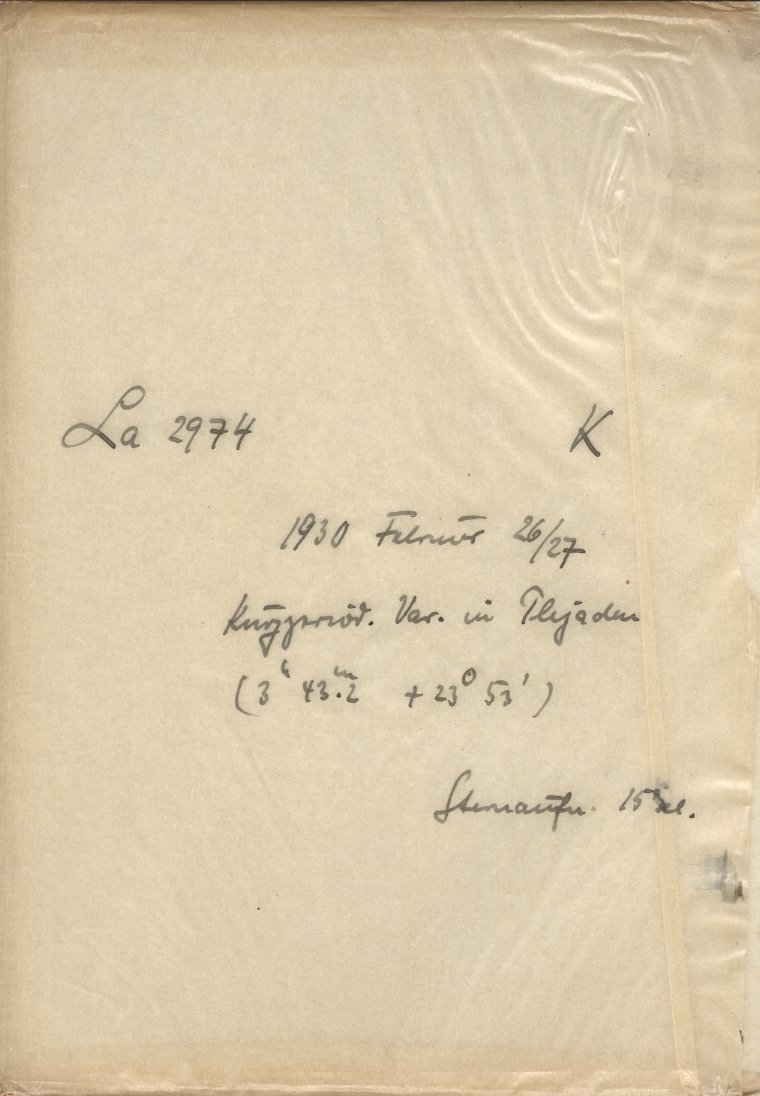 La 2974 K
1930 Februar 26/27
Kurzperiod. Var. in Plejaden
(3ʰ 43.ᵐ2 + 23° 53')
Sternaufn. 15